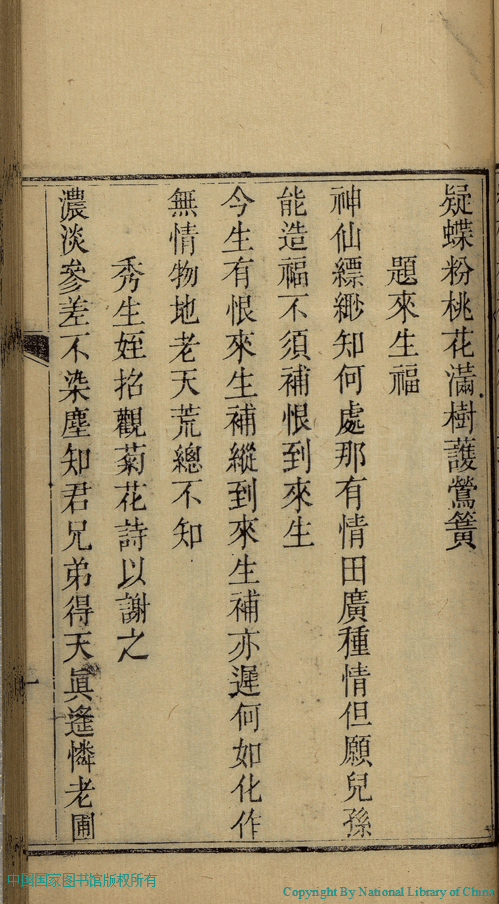 疑蝶粉桃花滿樹護鶯簧
題來生福
神仙縹緲知何處那有情田廣種情但願兒孫
能造福不須補恨到來生
今生有恨來生補縱到來生補亦遲何如化作
無情物地老天荒總不知
秀生姪招觀菊花詩以謝之
濃淡參差不染塵知君兄弟得天眞遙憐老圃
中国国家图书馆版权所有
Copyright By National Library of China